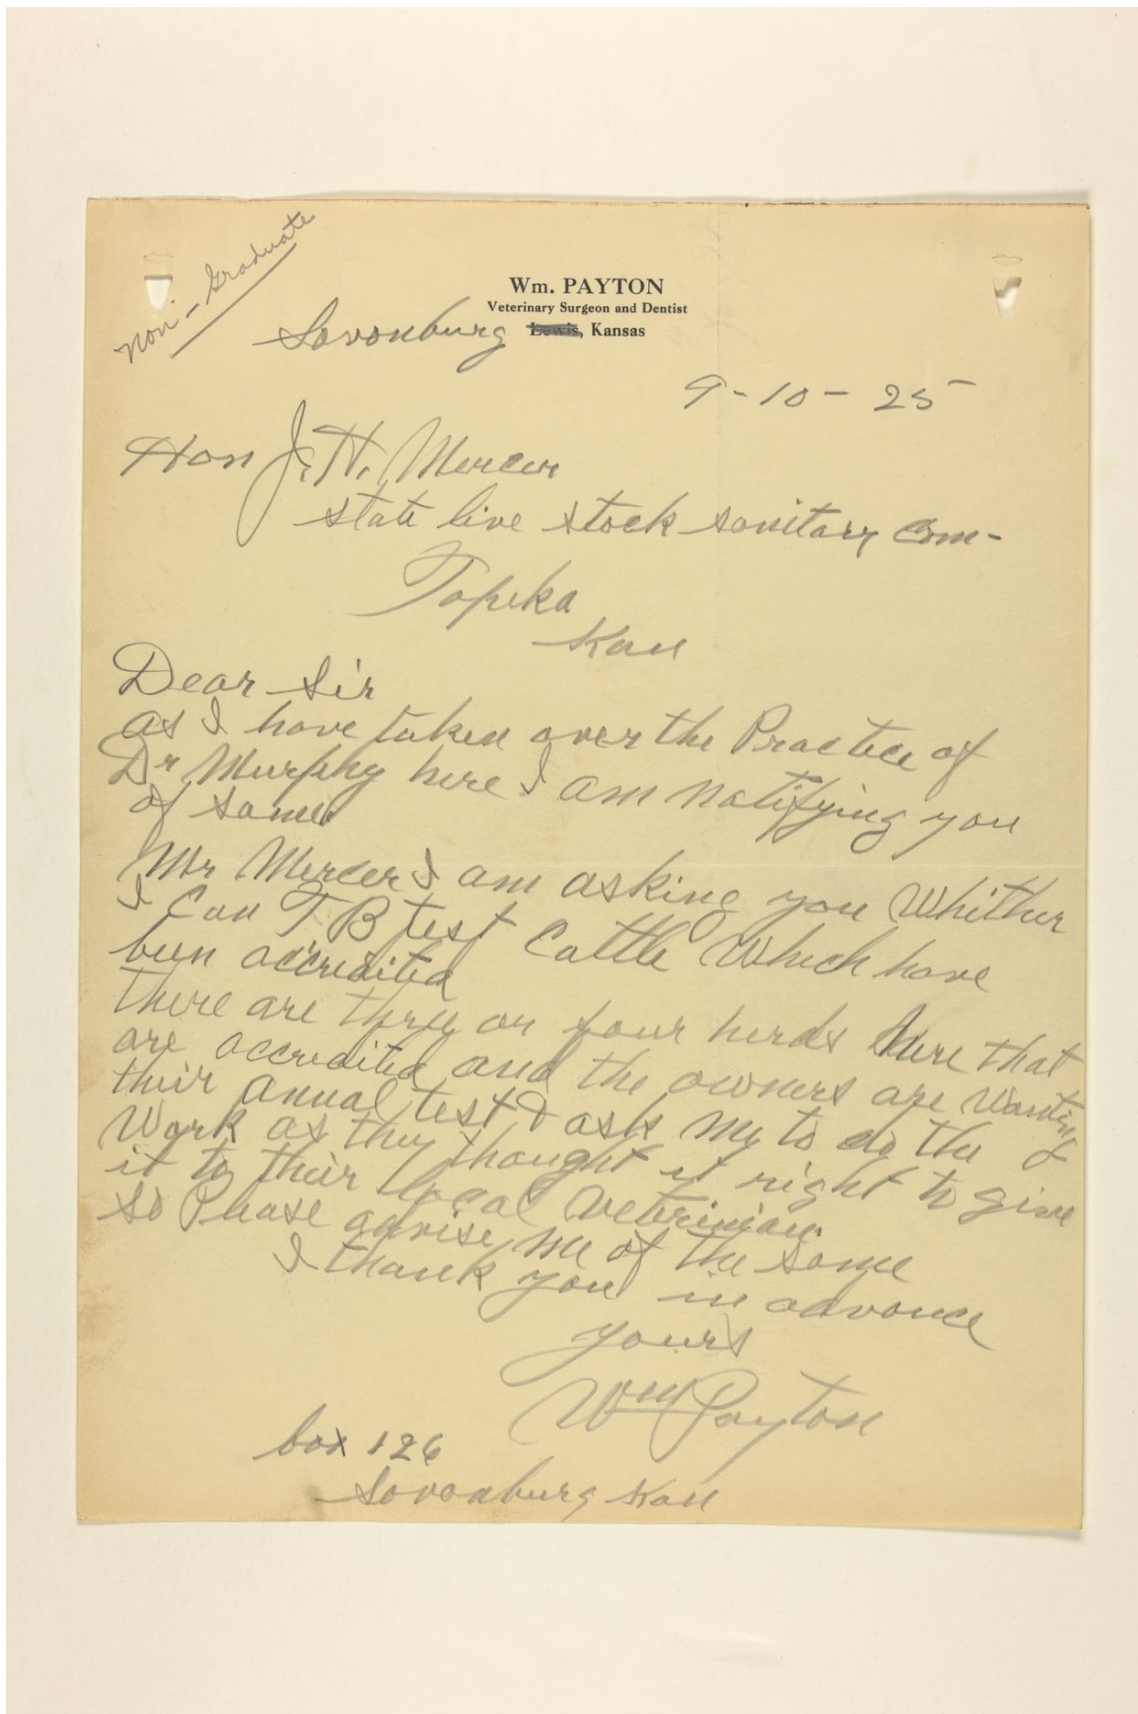 Non-Graduate
Wm. PAYTON
Veterinary Surgeon and Dentist
Savonburg Lewis, Kansas
9-10-25
Hon J. H. Mercer
state live stock sanitary com-
Topeka
Kan
Dear Sir
as I have taken over the Practice of
Dr Murphy here I am notifying you
of same
Mr Mercer I am asking you Whither
I Can T B test Cattle Which have
been accredited
there are three or four herds here that
are accredited and the owners are wanting
their annual test & ask me to do the
Work as they thought it right to give
it to their local vetrinian.
so Please advise me of the same
I thank you in advance
yours
Wm Payton
box 126
Savonburg Kan